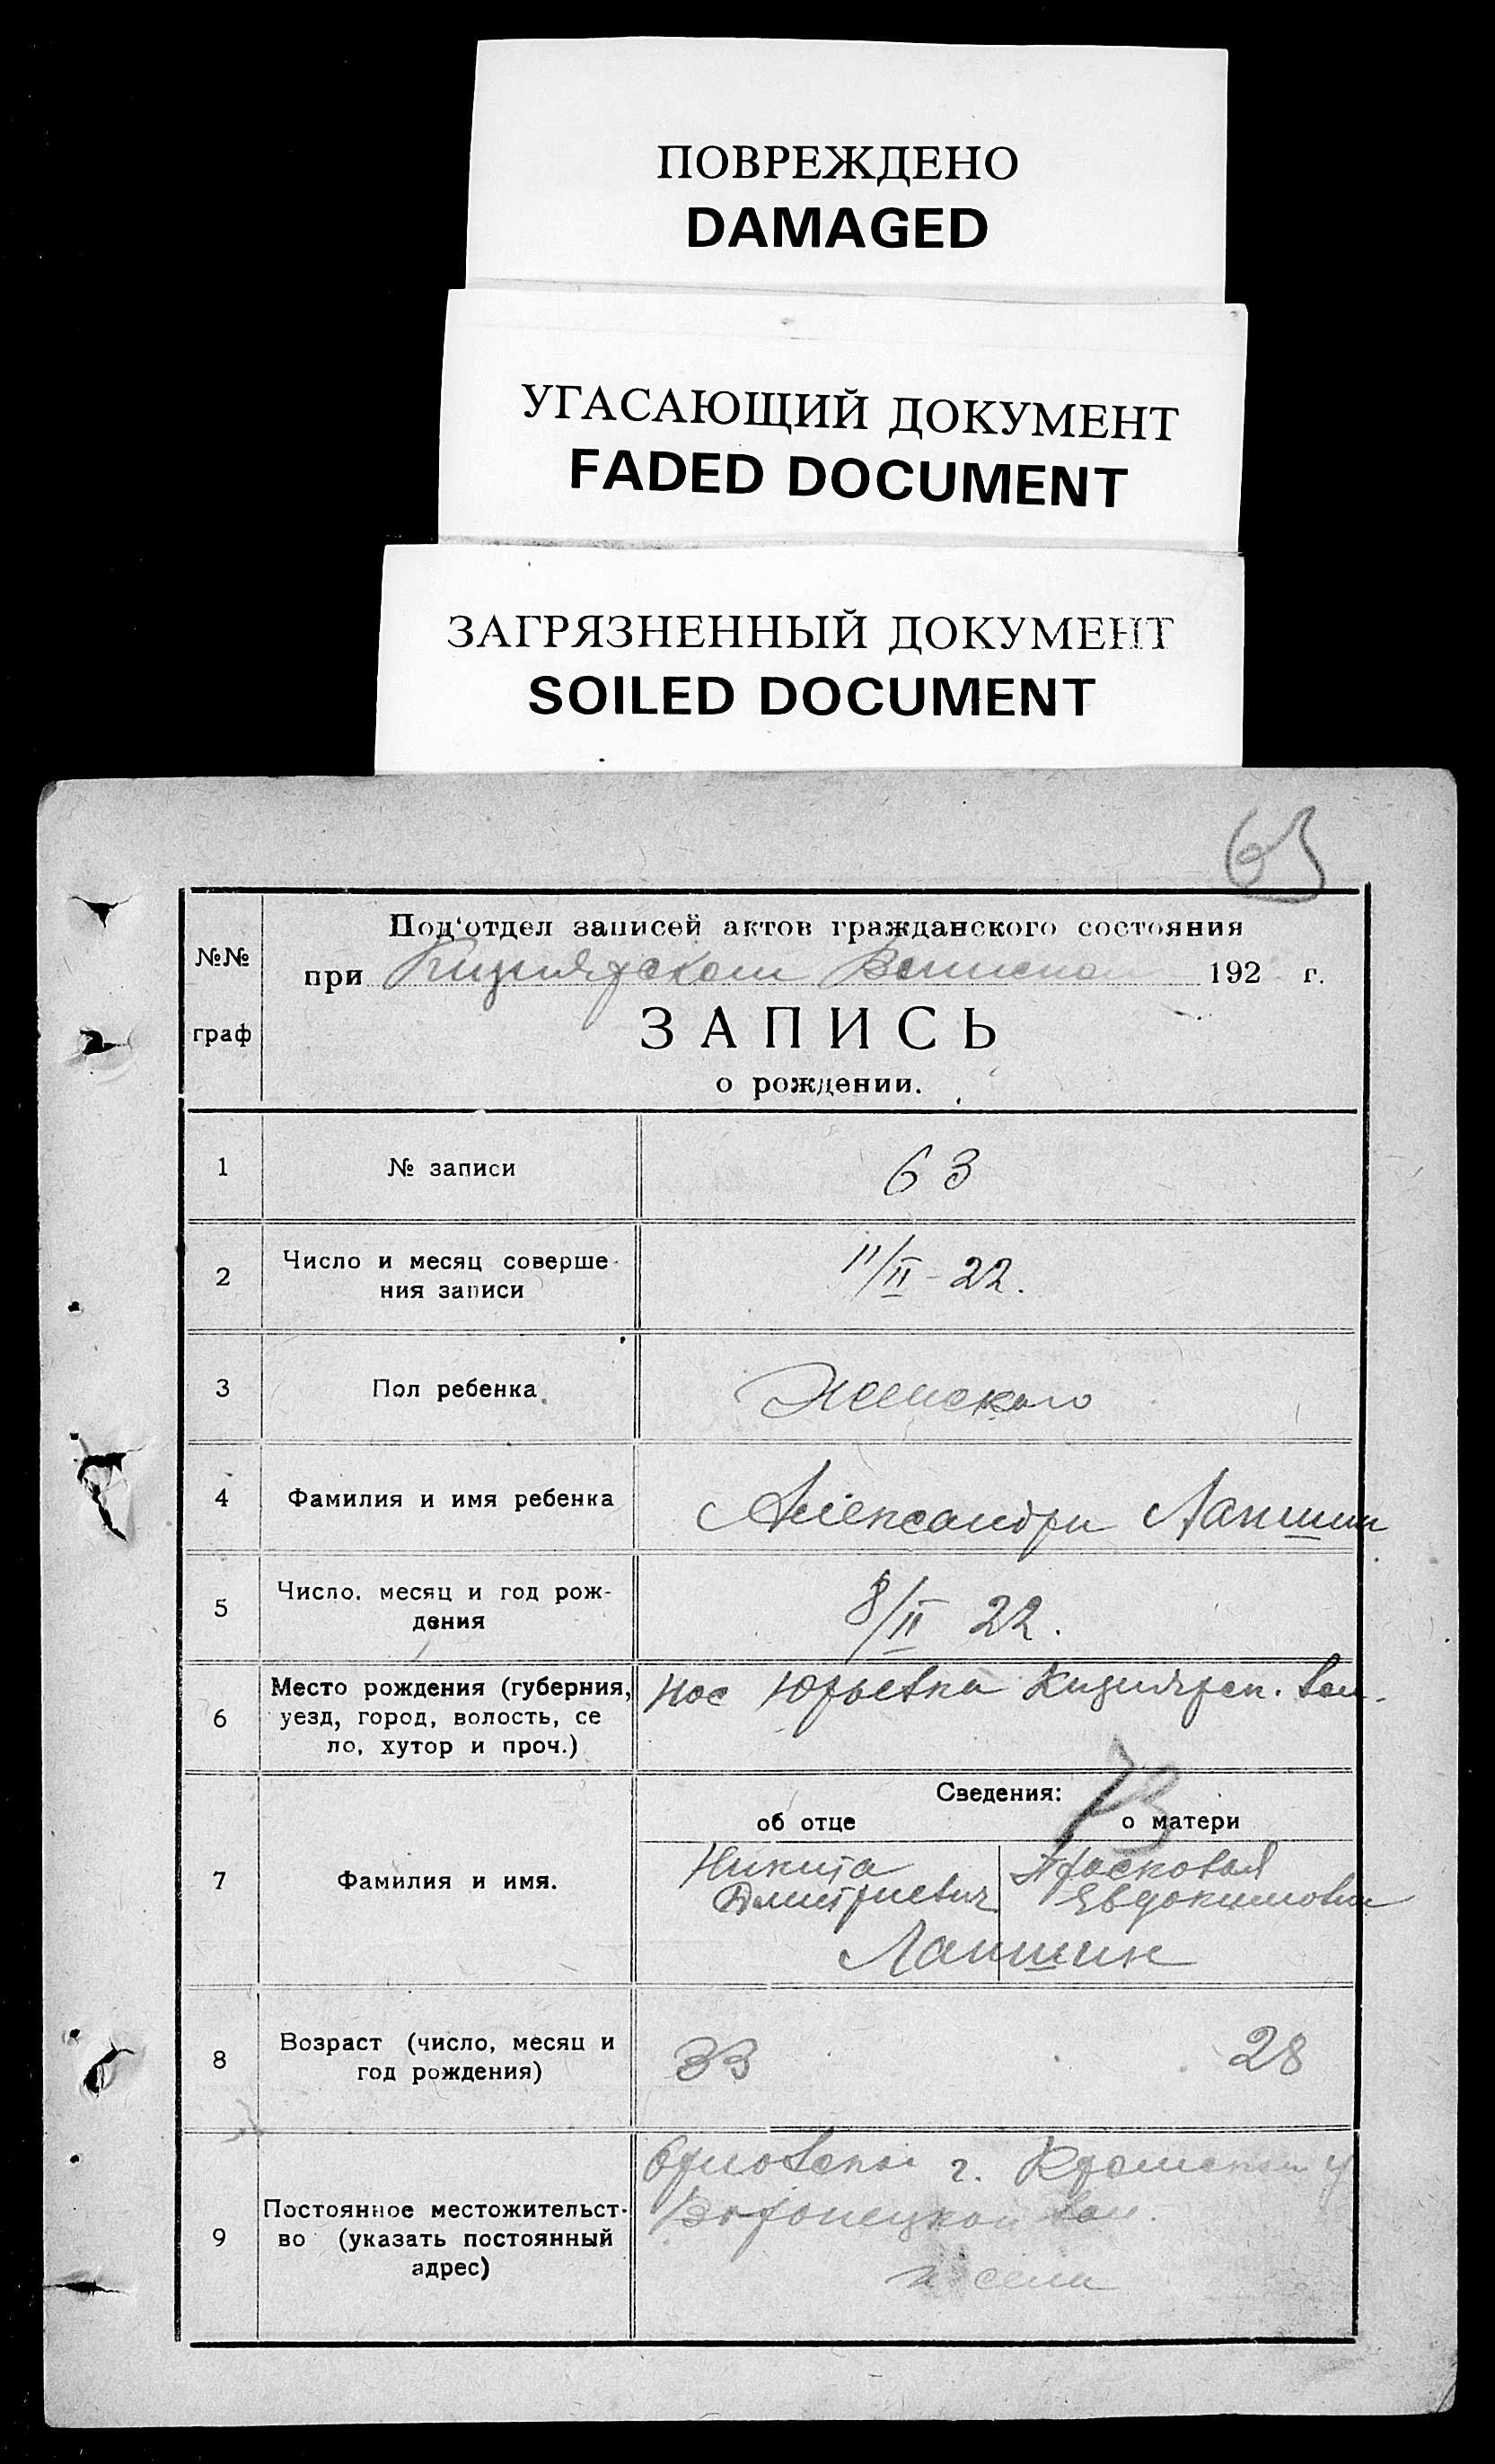 ПОВРЕЖДЕНО
DAMAGED
УГАСАЮЩИЙ ДОКУМЕНТ
FADED DOCUMENT
ЗАГРЯЗНЕННЫЙ ДОКУМЕНТ
SOILED DOCUMENT
№№
граф
Под‘отдел записей актов гражданского состояния
при 192 г.
ЗАПИСЬ
о рождении.
1 № записи 63
2 Число и месяц соверше-
ния записи
11/II - 22.
3 Пол ребенка Женского
4 Фамилия и имя ребенка Александра Лапшин
5 Число, месяц и год рож-
дения
8/II 22.
6 Место рождения (губерния,
уезд, город, волость, се
ло, хутор и проч.)
пос Юрьевка вол.
Сведения:
об отце о матери
7 Фамилия и имя.
Никита Прасковья
Дмитриевич Евдокимовна
Лапшин
8 Возраст (число, месяц и
год рождения)
33 28
9 Постоянное местожительст-
во (указать постоянный
адрес)
г. у
вол.